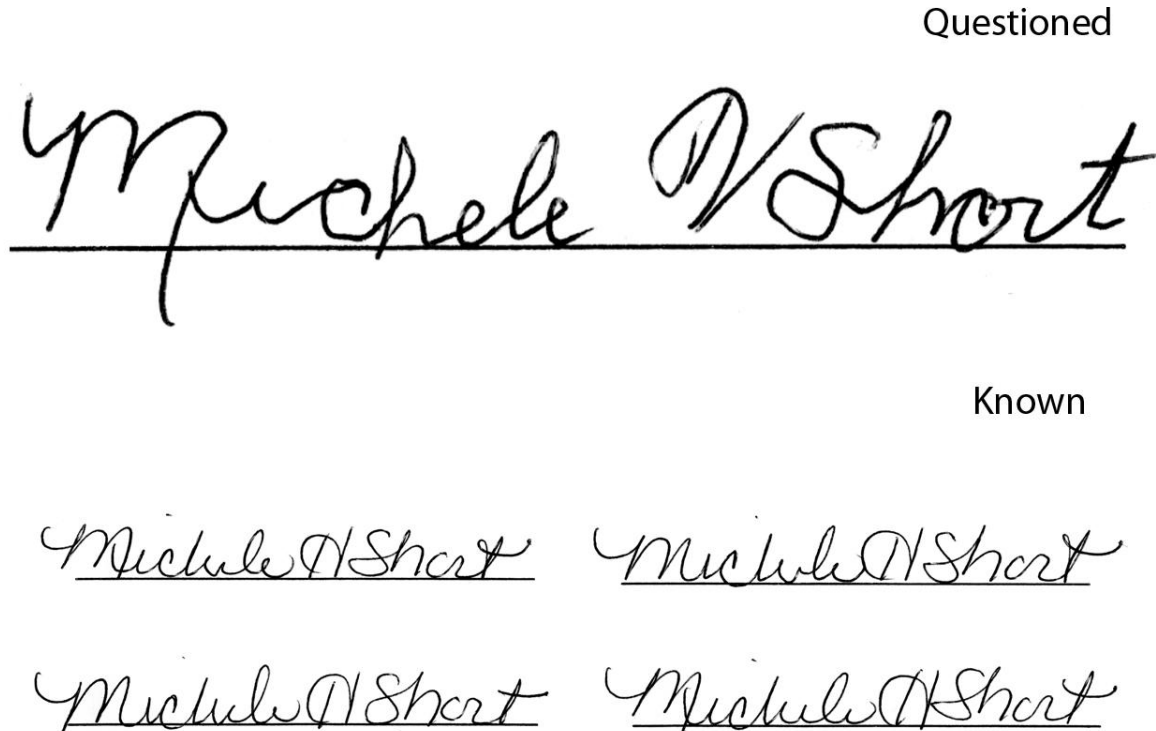 Questioned
Michele H Short
Known
Michele H Short Michele H Short
Michele H Short Michele H Short